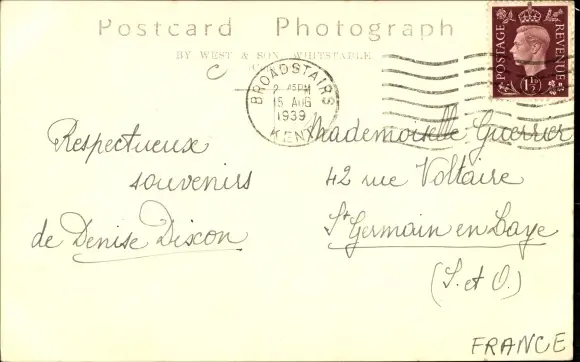 Postcard Photograph
BY WEST & SON, WHITSTABLE.
POSTAGE REVENUE
1½D
BROADSTAIRS
2 45PM
15 AUG
1939
KENT
Respectueux
souvenirs
de Denise Discon
Mademoiselle Guerrier
42 rue Voltaire
St Germain en Laye
(S. et O.)
FRANCE